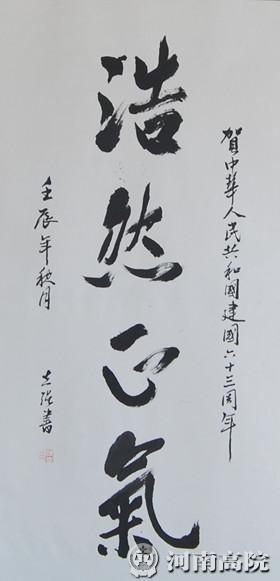 賀中華人民共和國建國六十三周年
浩然正氣
壬辰年秋月
書
河南高院